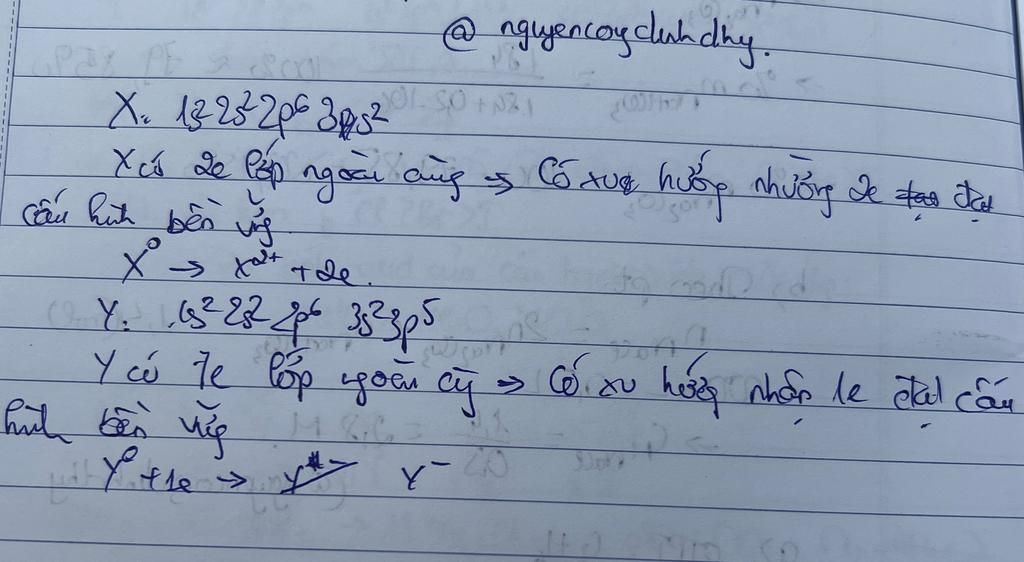 @ nguyencongchinhdhy.
X: 1s²2s²2p⁶ 3s²
X có 2e lớp ngoài cùng → Có xu hướng nhường 2e đạt
cấu hình bền vững
X⁰ → X²⁺ + 2e.
Y: 1s²2s² 2p⁶ 3s²3p⁵
Y có 7e lớp ngoài cùng → Có xu hướng nhận 1e đạt cấu
hình bền vững
Y⁰ + 1e → Y⁻